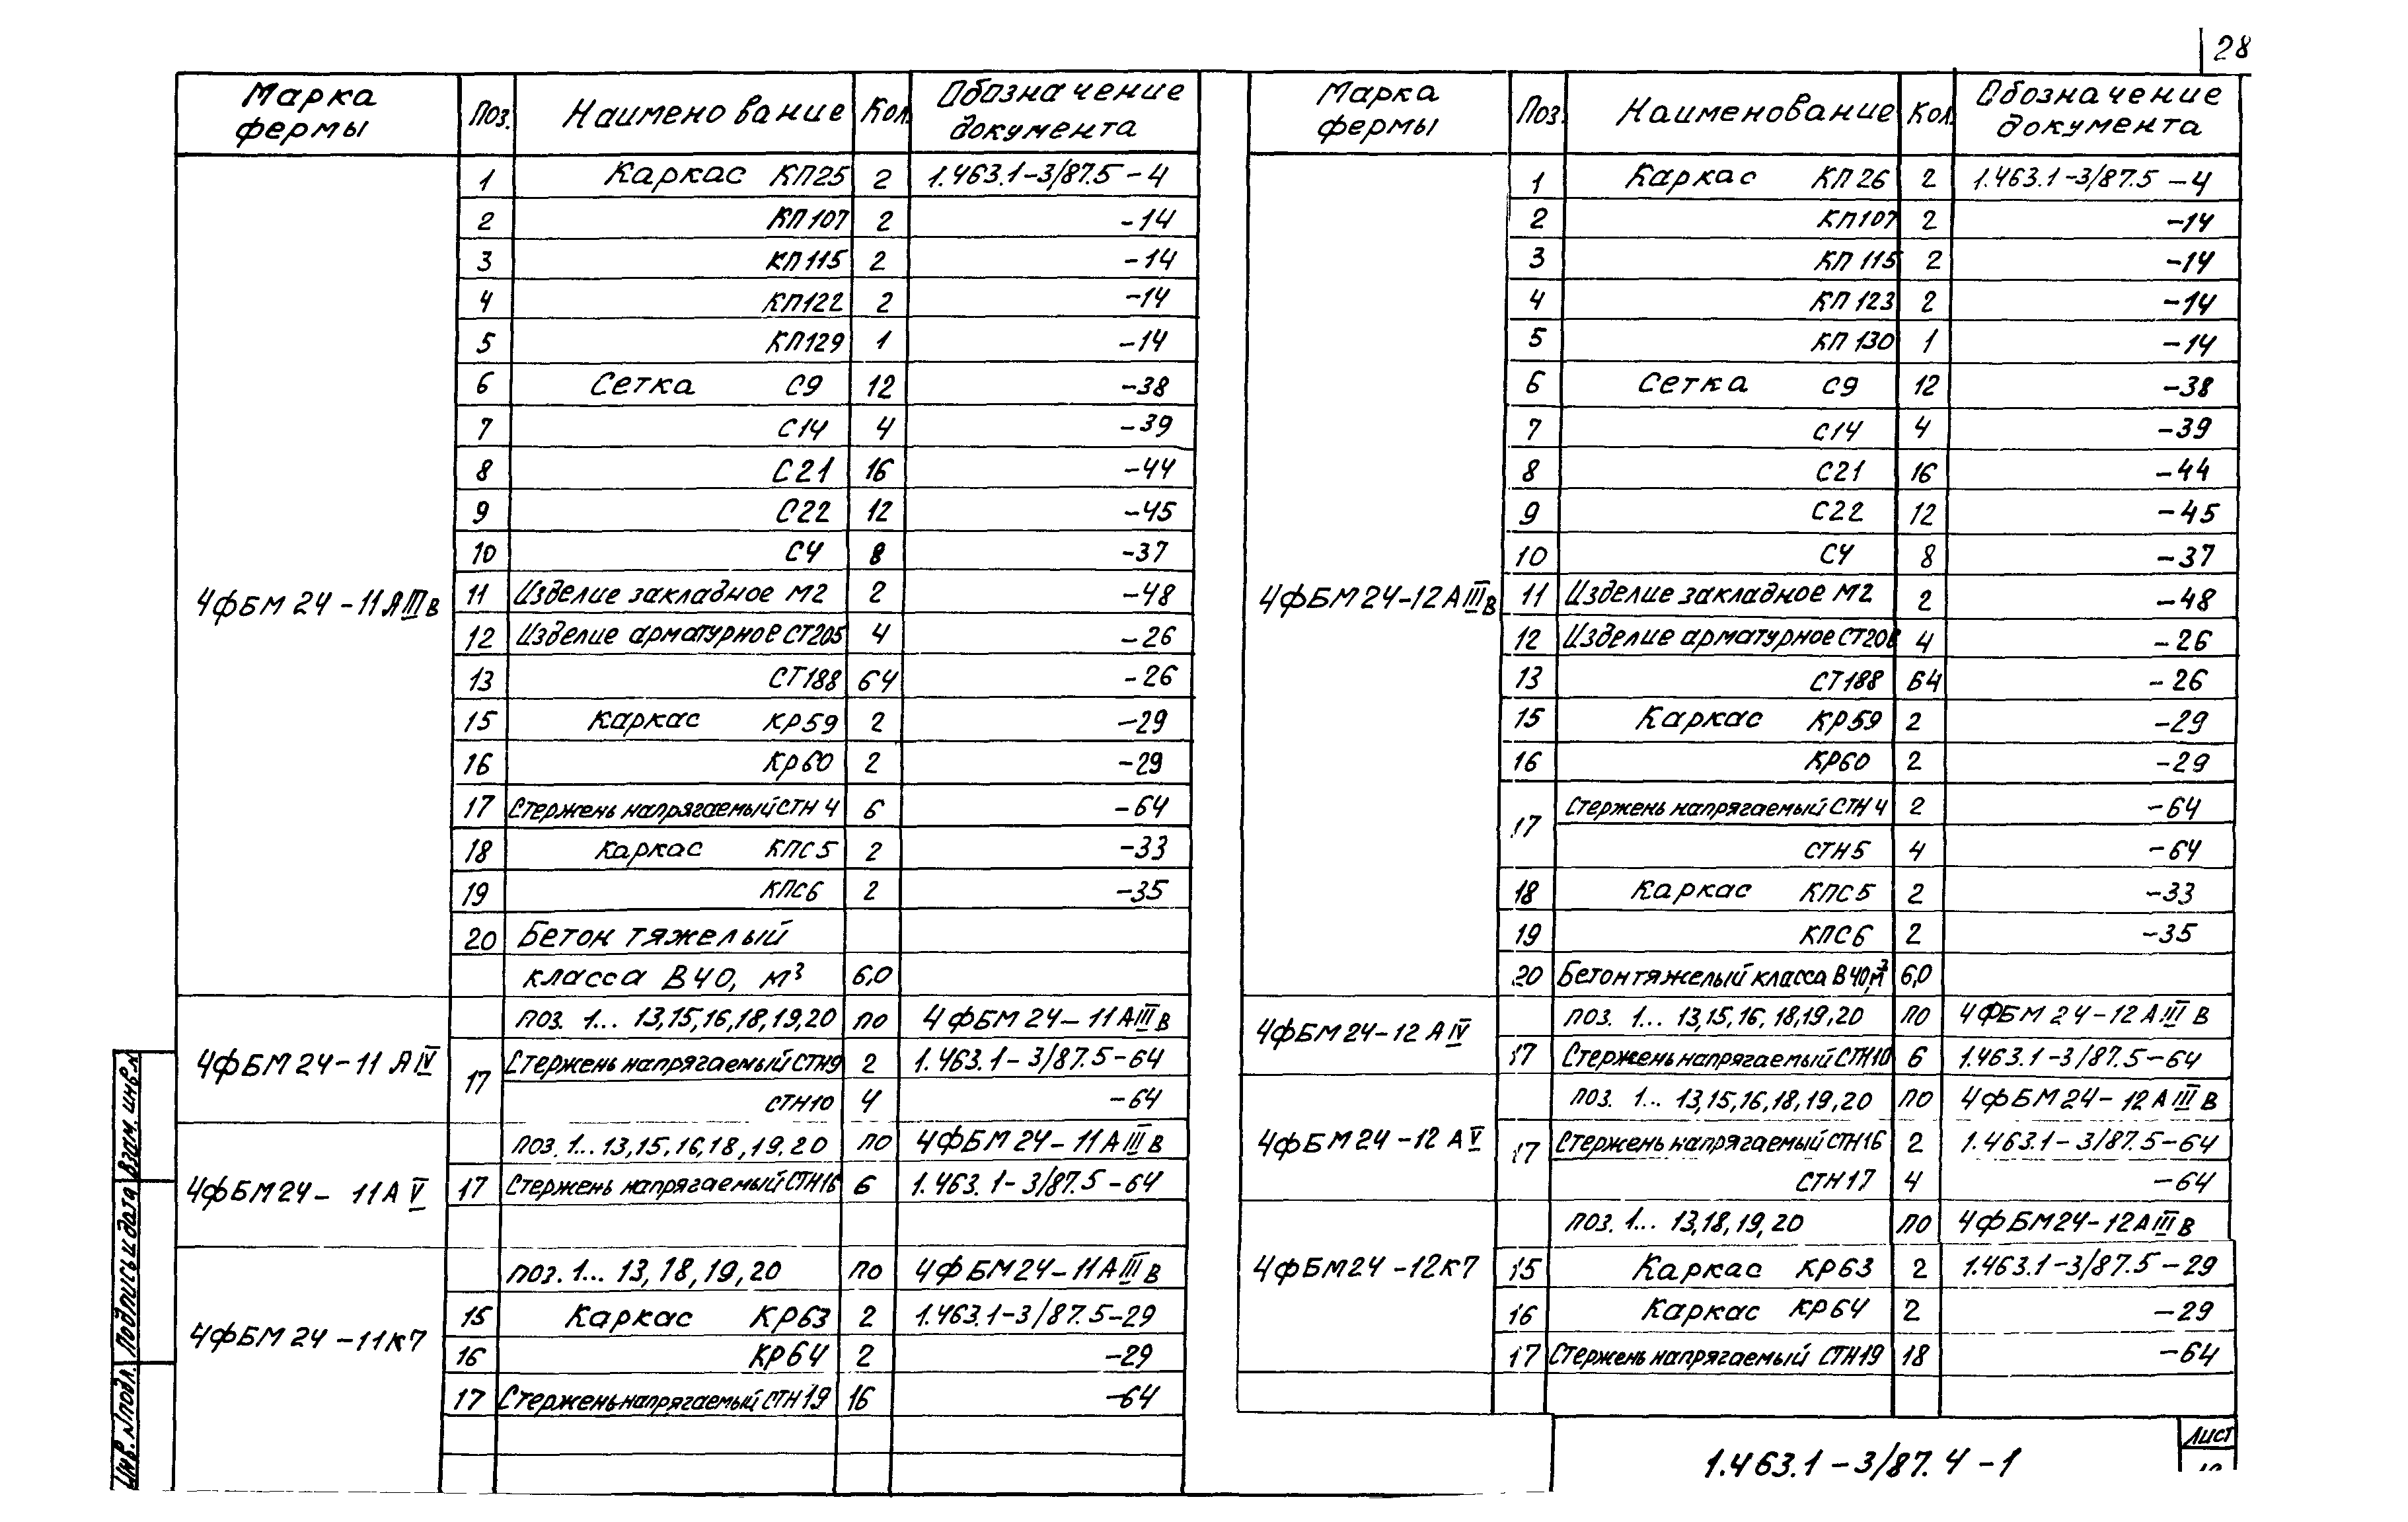 28
Марка фермы Поз. Наименование Кол. Обозначение документа
4ФБМ24-11АIIIв
1 Каркас КП25 2 1.463.1-3/87.5-4
2 КП107 2 -14
3 КП115 2 -14
4 КП122 2 -14
5 КП129 1 -14
6 Сетка С9 12 -38
7 С14 4 -39
8 С21 16 -44
9 С22 12 -45
10 С4 8 -37
11 Изделие закладное М2 2 -48
12 Изделие арматурное СТ205 4 -26
13 СТ188 64 -26
15 Каркас КР59 2 -29
16 КР60 2 -29
17 Стержень напрягаемый СТН4 6 -64
18 Каркас КПС5 2 -33
19 КПС6 2 -35
20 Бетон тяжелый
класса В40, м³ 6,0
4ФБМ24-11АIV
поз. 1... 13,15,16,18,19,20 по 4ФБМ24-11АIIIв
17 Стержень напрягаемый СТН9 2 1.463.1-3/87.5-64
СТН10 4 -64
4ФБМ24-11АV
поз. 1... 13,15,16,18,19,20 по 4ФБМ24-11АIIIв
17 Стержень напрягаемый СТН16 6 1.463.1-3/87.5-64
4ФБМ24-11К7
поз. 1... 13,18,19,20 по 4ФБМ24-11АIIIв
15 Каркас КР63 2 1.463.1-3/87.5-29
16 КР64 2 -29
17 Стержень напрягаемый СТН19 16 -64
Марка фермы Поз. Наименование Кол. Обозначение документа
4ФБМ24-12АIIIв
1 Каркас КП26 2 1.463.1-3/87.5-4
2 КП107 2 -14
3 КП115 2 -14
4 КП123 2 -14
5 КП130 1 -14
6 Сетка С9 12 -38
7 С14 4 -39
8 С21 16 -44
9 С22 12 -45
10 С4 8 -37
11 Изделие закладное М2 2 -48
12 Изделие арматурное 4 -26
13 СТ188 64 -26
15 Каркас КР59 2 -29
16 КР60 2 -29
17 Стержень напрягаемый СТН4 2 -64
СТН5 4 -64
18 Каркас КПС5 2 -33
19 КПС6 2 -35
20 Бетон тяжелый класса В40, м³ 6,0
4ФБМ24-12АIV
поз. 1... 13,15,16,18,19,20 по 4ФБМ24-12АIIIв
17 Стержень напрягаемый СТН10 6 1.463.1-3/87.5-64
4ФБМ24-12АV
поз. 1... 13,15,16,18,19,20 по 4ФБМ24-12АIIIв
17 Стержень напрягаемый СТН16 2 1.463.1-3/87.5-64
СТН17 4 -64
4ФБМ24-12К7
поз. 1... 13,18,19,20 по 4ФБМ24-12АIIIв
15 Каркас КР63 2 1.463.1-3/87.5-29
16 Каркас КР64 2 -29
17 Стержень напрягаемый СТН19 18 -64
1.463.1-3/87.4-1
Лист
Инв. № подл. Подпись и дата Взам. инв. №